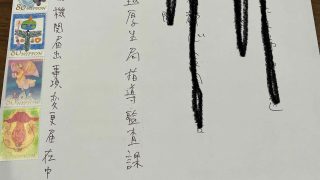 厚生局指導監査課
機関届出事項変更届在中
80 NIPPON
80 NIPPON
80 NIPPON